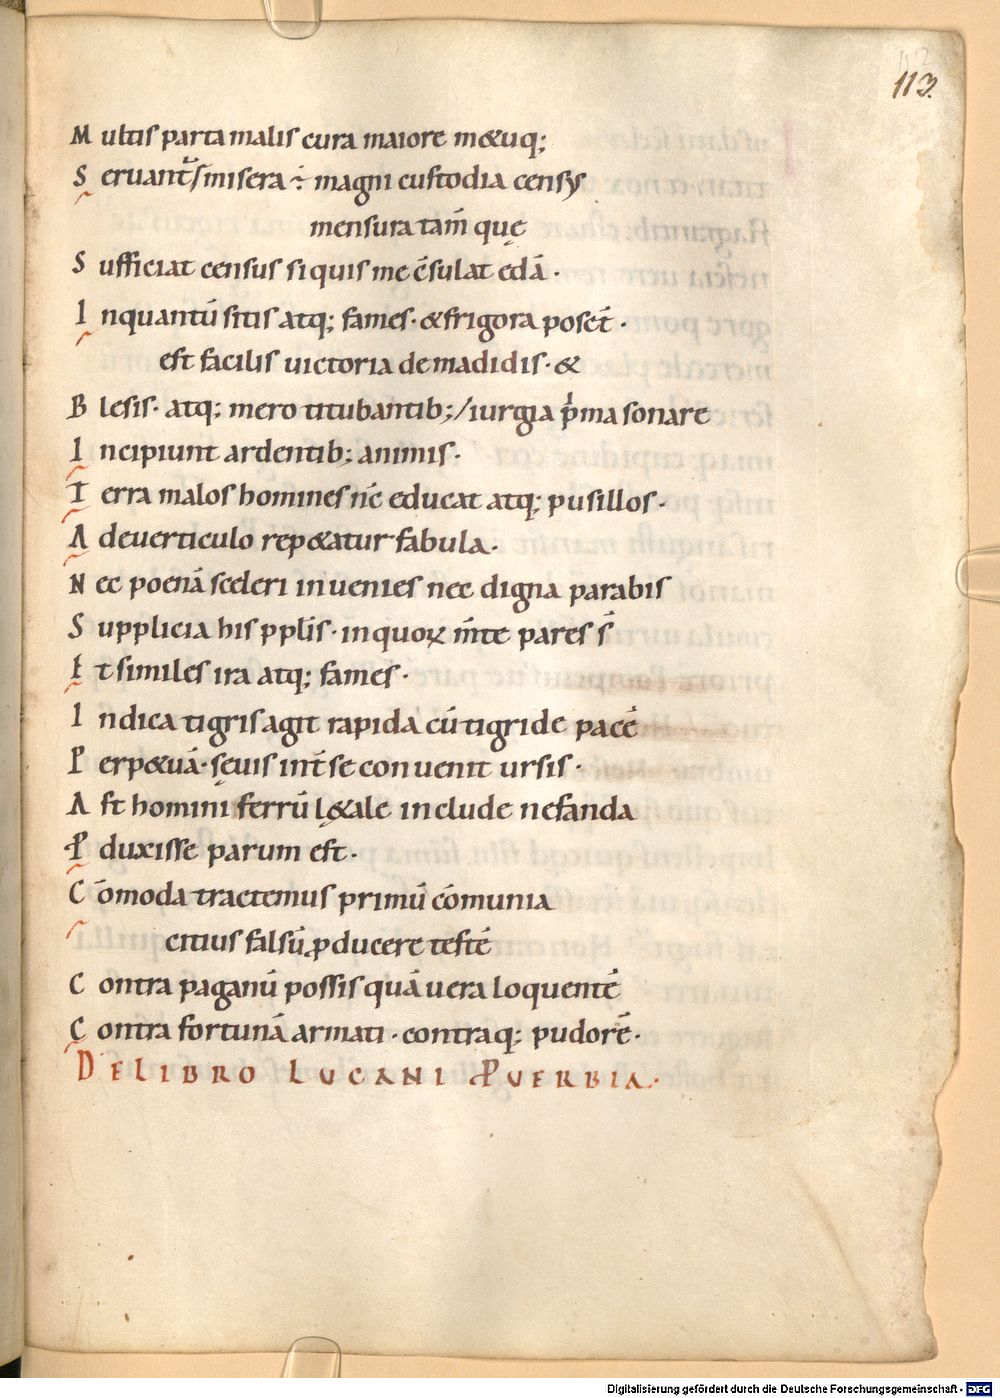 113.
Multis parta malis cura maiore m&uq;
Seruant᷒ / misera ÷ magni custodia censꝰ
mensura tam̄ quę
Sufficiat census siquis me c̄sulat edā·
Inquantū sitis atq; fames· &frigora posct̄·
est facilis uictoria demadidis· &
Blesis· atq; mero titubantib; / iurgia p̍ma sonare
Incipiunt ardentib; animis·
Terra malos homines nc̄ educat atq; pusillos·
A deuerticulo rep&atur fabula·
Nec poenā sceleri inuenies nec digna parabis
Supplicia his pplīs· inquoꝝ m̄te pares s̄
Et similes ira atq; fames·
Indica tigris agit rapida cū tigride pacē
Perp&uā· sęuis int̄ se conuenit ursis·
Ast homini ferrū l&ale include nefanda
Ꝓduxisse parum est·
C̄omoda tractemus primū cōmunia
citius falsū ꝓducere testē
Contra paganū possis quā uera loquentē
Contra fortunā armati· contraq; pudorē·
DE LIBRO LUCANI ꝒUERBIA·
Digitalisierung gefördert durch die Deutsche Forschungsgemeinschaft - DFG